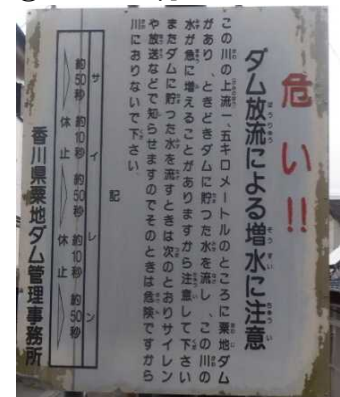 危い!!
ダム放流による増水に注意
この川の上流一、五キロメートルのところに粟地ダム
があり、ときどきダムに貯った水を流し、この川の
水が急に増えることがありますから注意して下さい
またダムに貯った水を流すときは次のとおりサイレン
や放送などで知らせますのでそのときは危険ですから
川におりないで下さい
記
サイレン
約50秒 休止 約10秒 約50秒 休止 約10秒 約50秒
香川県粟地ダム管理事務所